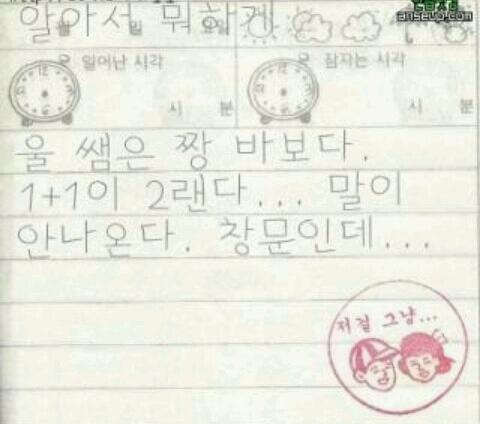 알아서 뭐하게
일어난 시각
잠자는 시각
시 분
시 분
울 쌤은 짱 바보다.
1+1이 2랜다... 말이
안나온다. 창문인데...
저걸 그냥...